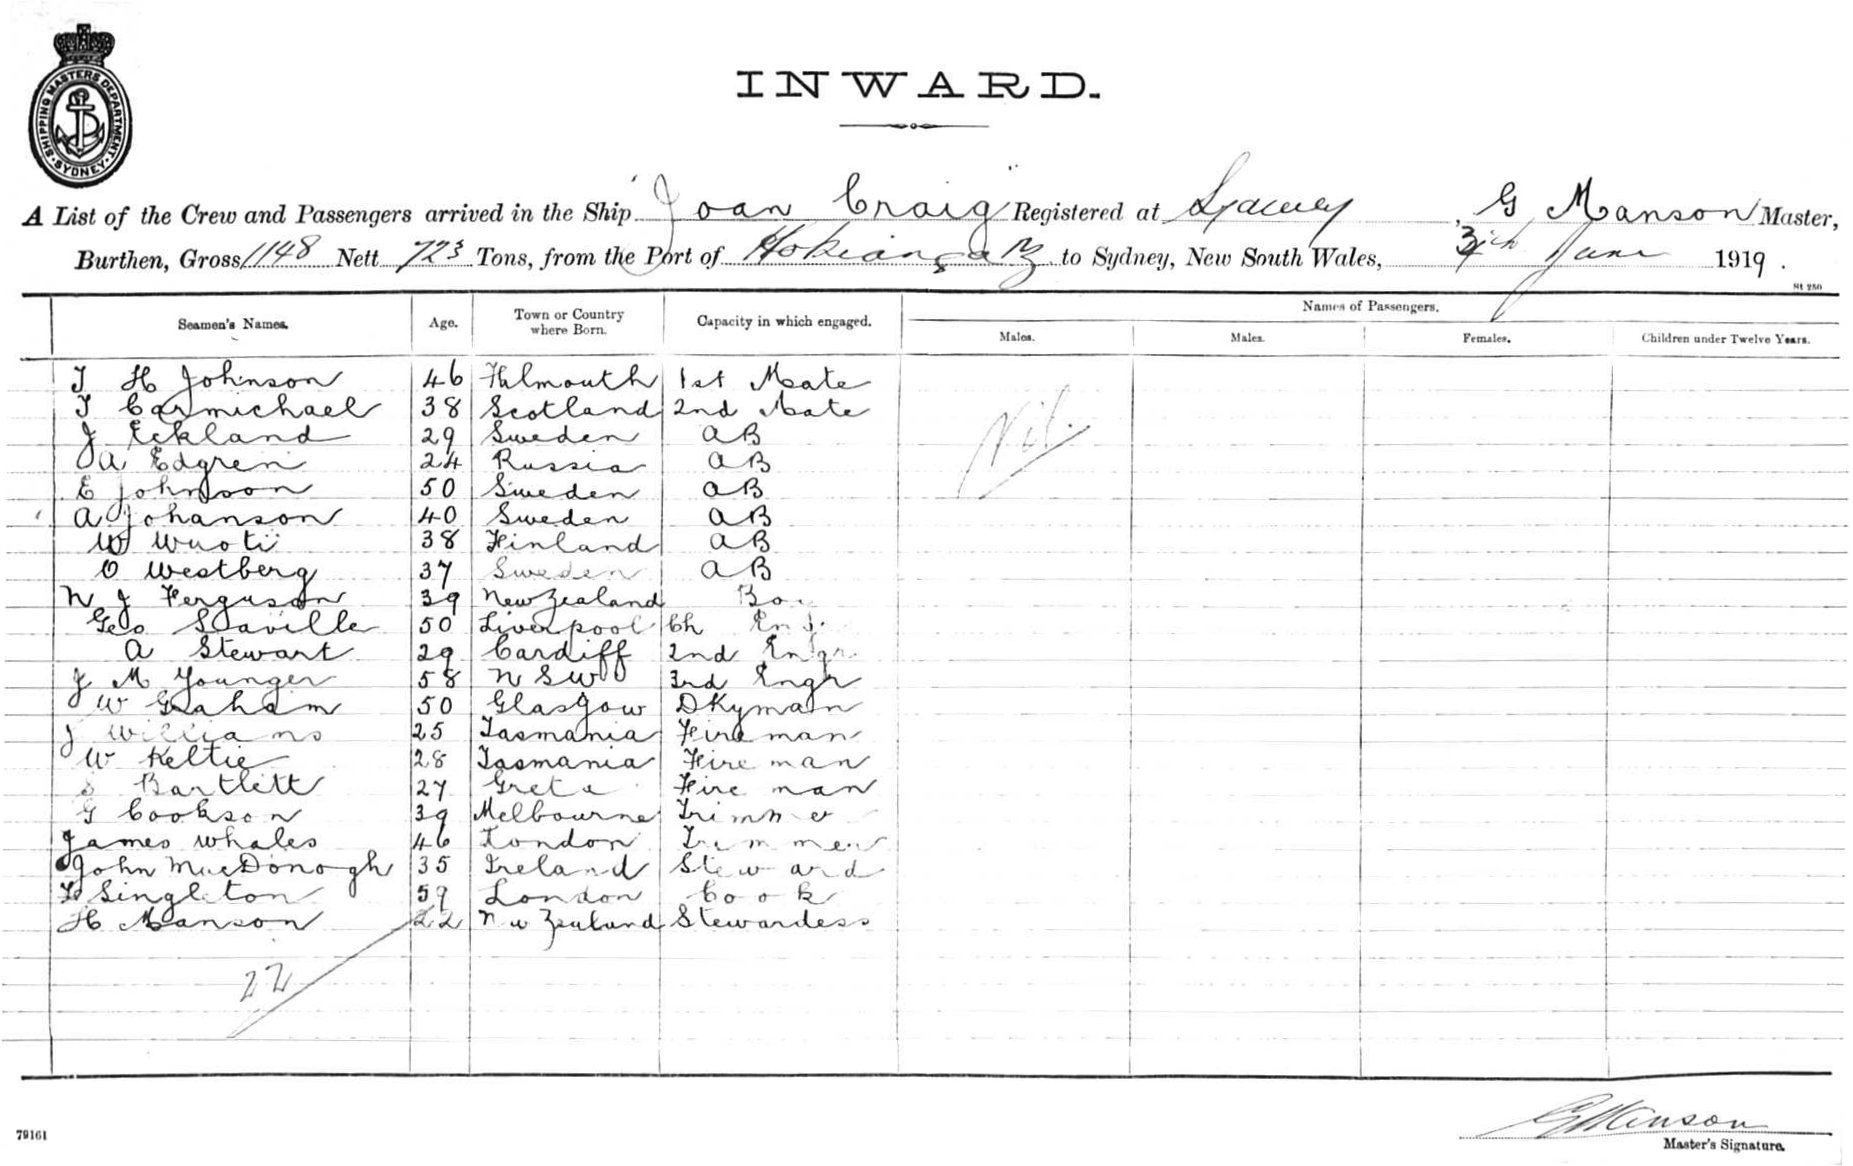 SHIPPING MASTERS DEPARTMENT. SYDNEY.
INWARD.
A List of the Crew and Passengers arrived in the Ship "Joan Craig" Registered at Sydney, G Manson Master,
Burthen, Gross 1148 Nett 723 Tons, from the Port of Hokianga NZ to Sydney, New South Wales, June 1919.
St 250
Seamen's Names. Age. Town or Country where Born. Capacity in which engaged. Names of Passengers.
Males. Males. Females. Children under Twelve Years.
T H Johnson 46 Falmouth 1st Mate
T Carmichael 38 Scotland 2nd Mate
J Eckland 29 Sweden AB
A Edgren 24 Russia AB
E Johnson 50 Sweden AB
A Johanson 40 Sweden AB
W Wuoti 38 Finland AB
O Westberg 37 Sweden AB
N J Ferguson 39 New Zealand Boy
Geo Seaville 50 Liverpool Ch Eng
A Stewart 29 Cardiff 2nd Engr
J M Younger 58 N S W 3rd Engr
W Graham 50 Glasgow DKyman
J Williams 25 Tasmania Fireman
W Keltie 28 Tasmania Fire man
S Bartlett 27 Greta Fire man
G Cookson 39 Melbourne Trimmer
James Whales 46 London Trimmer
John MacDonogh 35 Ireland Steward
Singleton 59 London Cook
H Manson 22 New Zealand Stewardess
Nil.
22
G Manson
Master's Signature.
79161